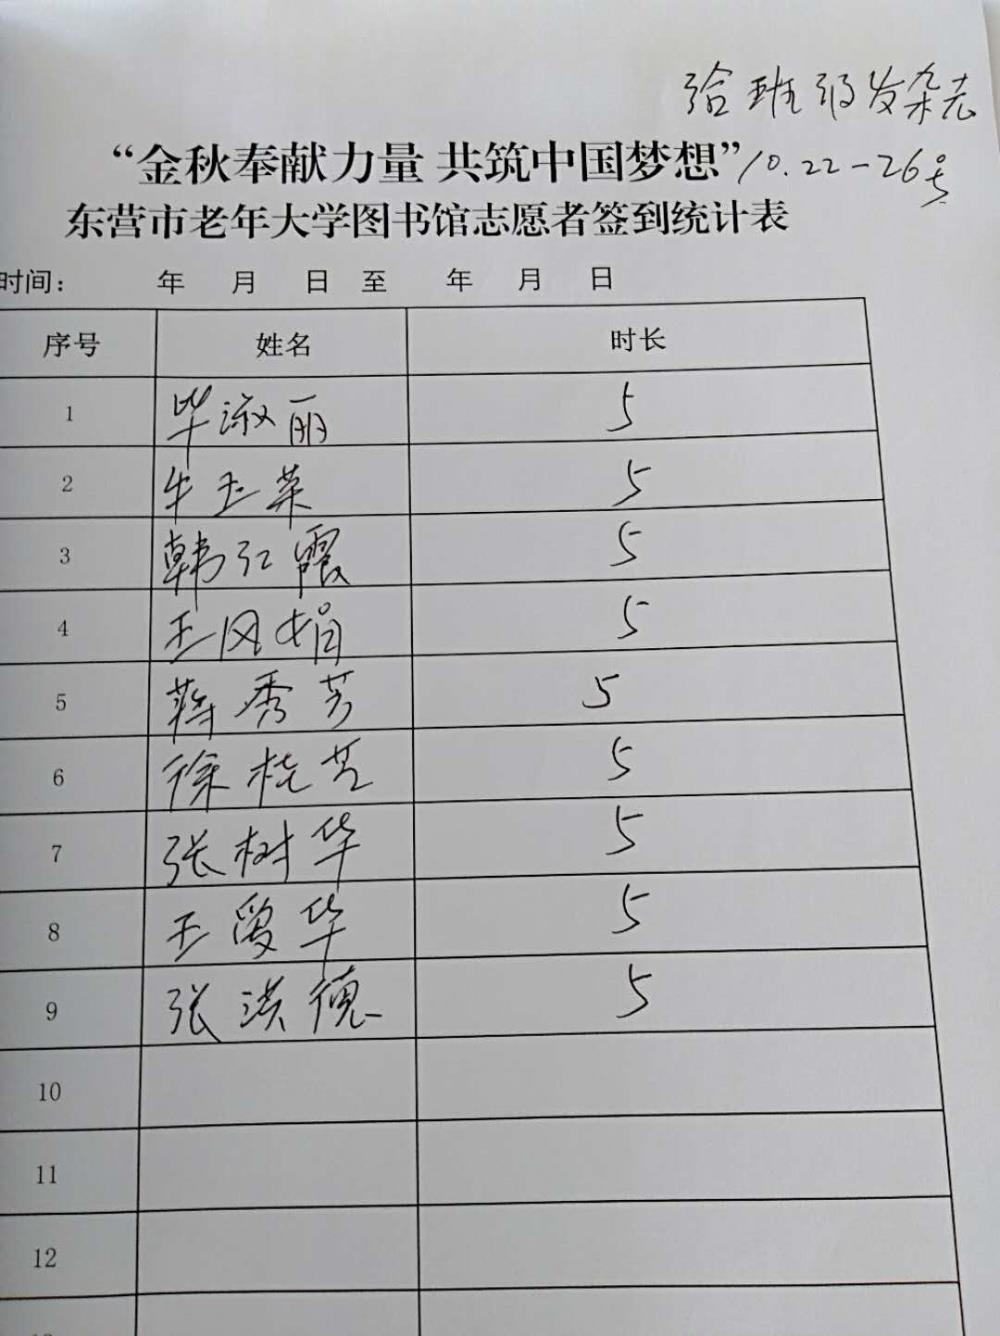 给班级发杂志
“金秋奉献力量 共筑中国梦想” 10.22-26号
东营市老年大学图书馆志愿者签到统计表
时间： 年 月 日 至 年 月 日
序号 姓名 时长
1 毕淑丽 5
2 牛玉菜 5
3 韩红霞 5
4 王风娟 5
5 蒋秀芳 5
6 徐桂芝 5
7 张树华 5
8 王爱华 5
9 张洪德 5
10
11
12